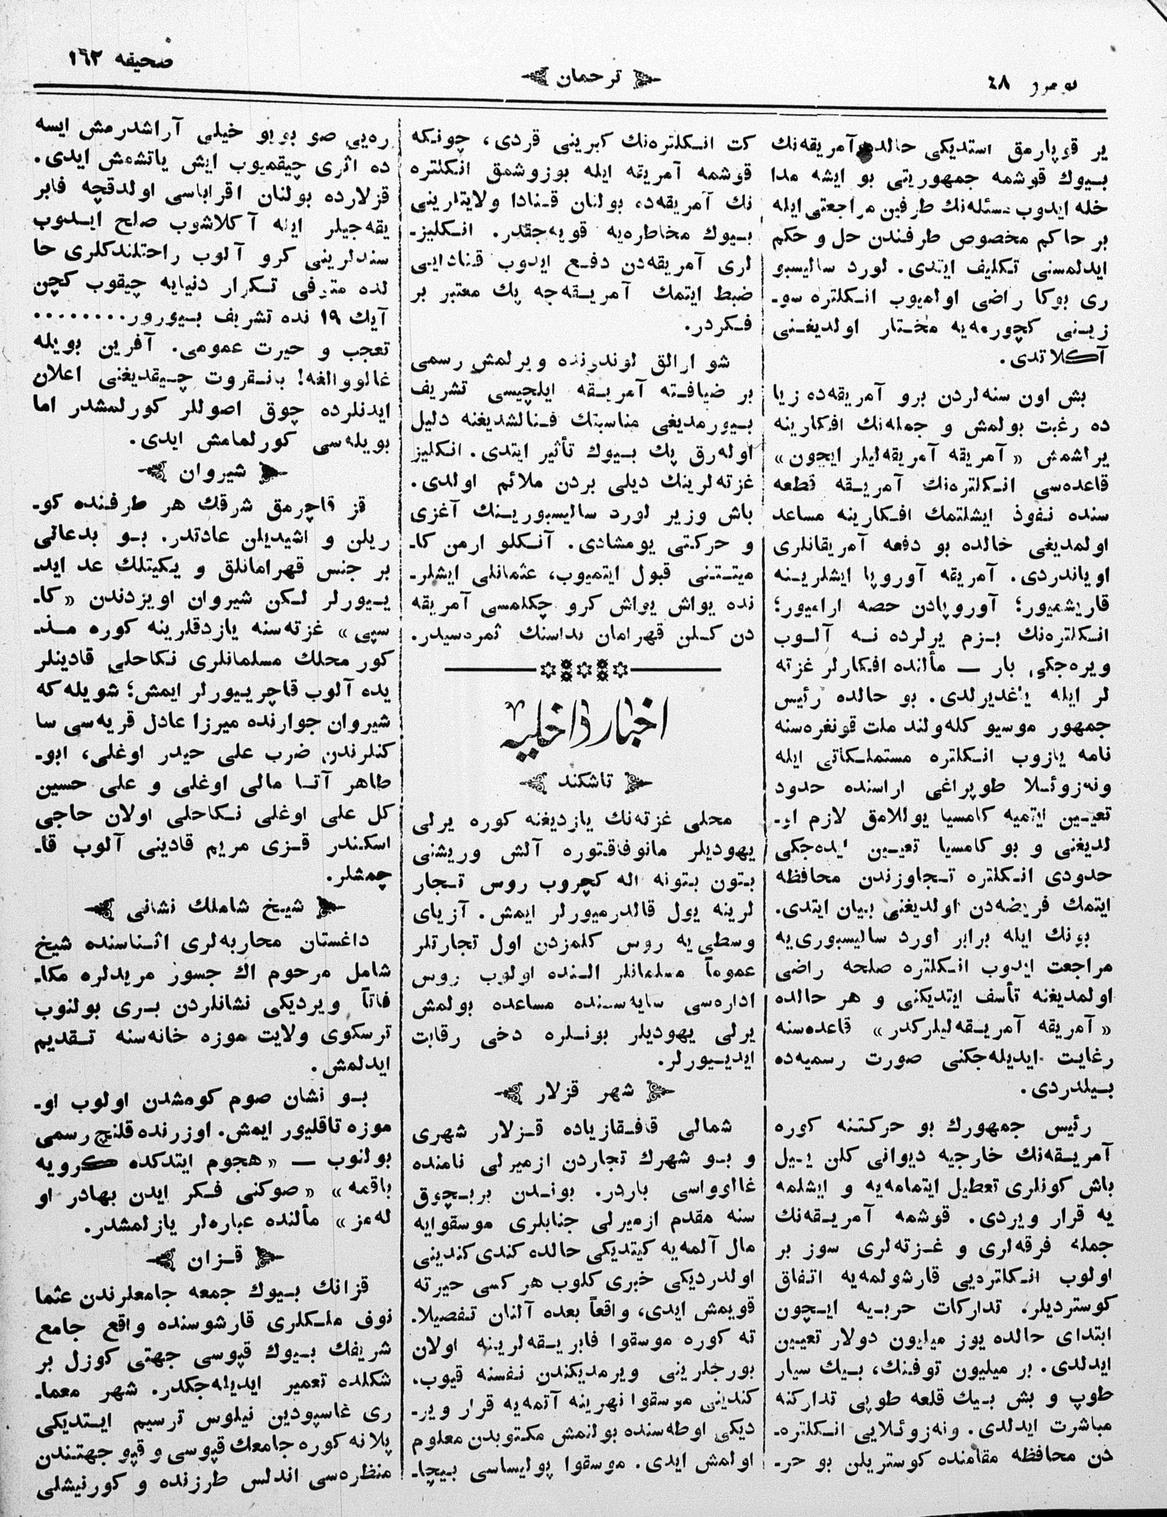 نومرو ٤٨
ترجمان
صحيفه ١٦٢
ير قوپارمق استديكى حالده آمريقه‌نك
بيوك قوشمه جمهوريتى بو ايشه مدا
خله ايدوب مسئله‌نك طرفين مراجعتى ايله
بر حاكم مخصوص طرفندن حل و حكم
ايدلمسنى تكليف ايتدى. لورد ساليسبو
رى بوكا راضى اولميوب انكلتره سو-
زينى كچورمه‌يه مختار اولديغنى
آكلاتدى.
بش اون سنه‌لردن برو آمريقه‌ده زيا
ده رغبت بولمش و جمله‌نك افكارينه
يراشمش «آمريقه آمريقه‌ليلر ايچون»
قاعده‌سى انكلتره‌نك آمريقه قطعه
سنده نفوذ ايشلتمك افكارينه مساعد
اولمديغى حالده بو دفعه آمريقانلرى
اوياندردى. آمريقه آوروپا ايشلرينه
قاريشميور؛ آوروپادن حصه اراميور؛
انكلتره‌نك بزم يرلرده نه آلوب
ويره‌جكى بار — مألنده افكارلر غزته
لر ايله ياغديرلدى. بو حالده رئيس
جمهور موسيو كله‌ولند ملت قونغره‌سنه
نامه يازوب انكلتره مستملكاتى ايله
ونه‌زوئلا طوپراغى اراسنده حدود
تعيين ايتميه كامسيا يوللامق لازم او-
لديغنى و بو كامسيا تعيين ايده‌جكى
حدودى انكلتره تجاوزندن محافظه
ايتمك فريضه‌دن اولديغنى بيان ايتدى.
بونك ايله برابر لورد ساليسبورى‌يه
مراجعت ايدوب انكلتره صلحه راضى
اولمديغنه تأسف ايتديكنى و هر حالده
«آمريقه آمريقه‌ليلركدر» قاعده‌سنه
رغايت ايديله‌جكنى صورت رسميه‌ده
بيلدردى.
رئيس جمهورك بو حركتنه كوره
آمريقه‌نك خارجيه ديوانى كلن ييل
باش كونلرى تعطيل ايتمامه‌يه و ايشلمه
يه قرار ويردى. قوشمه آمريقه‌نك
جمله فرقه‌لرى و غزته‌لرى سوز بر
اولوب انكلتره‌يى قارشولمه‌يه اتفاق
كوسترديلر. تداركات حربيه ايچون
ابتداى حالده يوز ميليون دولار تعيين
ايدلدى. بر ميليون توفنك، بيك سيار
طوپ و بش بيك قلعه طوپى تداركنه
مباشرت ايدلدى. ونه‌زوئلايى انكلتره-
دن محافظه مقامنده كوستريلن بو حر-
كت انكلتره‌نك كبرينى قردى، چونكه
قوشمه آمريقه ايله بوزوشمق انكلتره
نك آمريقه‌ده بولنان قنادا ولايتلرينى
بيوك مخاطره‌يه قويه‌جقدر. انكليز-
لرى آمريقه‌دن دفع ايدوب قنادايى
ضبط ايتمك آمريقه‌جه پك معتبر بر
فكردر.
شو ارالق لوندونده ويرلمش رسمى
بر ضيافته آمريقه ايلچيسى تشريف
بيورمديغى مناسبتك فنالشديغنه دليل
اوله‌رق پك بيوك تأثير ايتدى. انكليز
غزته‌لرينك ديلى بردن ملائم اولدى.
باش وزير لورد ساليسبورينك آغزى
و حركتى يومشادى. آنكلو ارمن كا-
ميتتنى قبول ايتميوب، عثمانلى ايشلر-
نده يواش يواش كرو چكلمسى آمريقه
دن كلن قهرامان نداسنك ثمره‌سيدر.
اخبار داخليه
تاشكند
محلى غزته‌نك يازديغنه كوره يرلى
يهوديلر مانوفاقتوره آلش وريشنى
بتون بتونه اله كچروب روس تجار
لرينه يول قالدرميورلر ايمش. آزياى
وسطى‌يه روس كلمزدن اول تجارتلر
عموماً مسلمانلر النده اولوب روس
اداره‌سى سايه‌سنده مساعده بولمش
يرلى يهوديلر بونلره دخى رقابت
ايدييورلر.
شهر قزلار
شمالى قافقازياده قزلار شهرى
و بو شهرك تجاردن ازميرلى نامنده
غالوواسى باردر. بوندن بربچوق
سنه مقدم ازميرلى جنابلرى موسقوايه
مال آلمه‌يه كيتديكى حالده كندى كندينى
اولدرديكى خبرى كلوب هر كسى حيرته
قويمش ايدى، واقعاً بعده آلنان تفصيلا-
ته كوره موسقوا فابريقه‌لرينه اولان
بورجلرينى ويرمديكندن نفسنه قيوب،
كندينى موسقوا نهرينه آتمه‌يه قرار وير-
ديكى اوطه‌سنده بولنمش مكتوبدن معلوم
اولمش ايدى. موسقوا پوليساسى بيچا-
ره‌يى صو بويو خيلى آراشدرمش ايسه
ده اثرى چيقميوب ايش ياتشمش ايدى.
قزلارده بولنان اقرباسى اولدقچه فابر
يقه‌جيلر ايله آكلاشوب صلح ايدوب
سندلرينى كرو آلوب راحتلندكلرى حا
لده متوفى تكرار دنيايه چيقوب كچن
آيك ١٩ نده تشريف بيورور........
تعجب و حيرت عمومى. آفرين بويله
غالووالغه! بانقروت چيقديغنى اعلان
ايدنلرده چوق اصوللر كورلمشدر اما
بويله‌سى كورلمامش ايدى.
شيروان
قز قاچرمق شرقك هر طرفنده كو-
ريلن و اشيديلن عادتدر. بو بدعاتى
بر جنس قهرامانلق و يكيتلك عد ايد-
ييورلر لكن شيروان اويزدندن «كا-
سپى» غزته‌سنه يازدقلرينه كوره مذ-
كور محلك مسلمانلرى نكاحلى قادينلر
يده آلوب قاچرييورلر ايمش؛ شويله كه
شيروان جوارنده ميرزا عادل قريه‌سى سا
كنلرندن ضرب على حيدر اوغلى، ابو-
طاهر آتا مالى اوغلى و على حسين
كل على اوغلى نكاحلى اولان حاجى
اسكندر قزى مريم قادينى آلوب قا-
چمشلر.
شيخ شاملك نشانى
داغستان محاربه‌لرى اثناسنده شيخ
شامل مرحوم اك جسور مريدلره مكا-
فاتاً ويرديكى نشانلردن برى بولنوب
ترسكوى ولايت موزه خانه‌سنه تقديم
ايدلمش.
بو نشان صوم كومشدن اولوب او-
موزه تاقليور ايمش. اوزرنده قلنچ رسمى
بولنوب — «هجوم ايتدكده كرويه
باقمه» «صوكنى فكر ايدن بهادر او
له‌مز» مألنده عباره‌لر يازلمشدر.
قزان
قزانك بيوك جمعه جامعلرندن عثما
نوف ملكلرى قارشوسنده واقع جامع
شريفك بيوك قپوسى جهتى كوزل بر
شكلده تعمير ايديله‌جكدر. شهر معما-
رى غاسپودين نيلوس ترسيم ايتديكى
پلانه كوره جامعك قپوسى و قپو جهتندن
منظره‌سى اندلس طرزنده و كورنيشلى